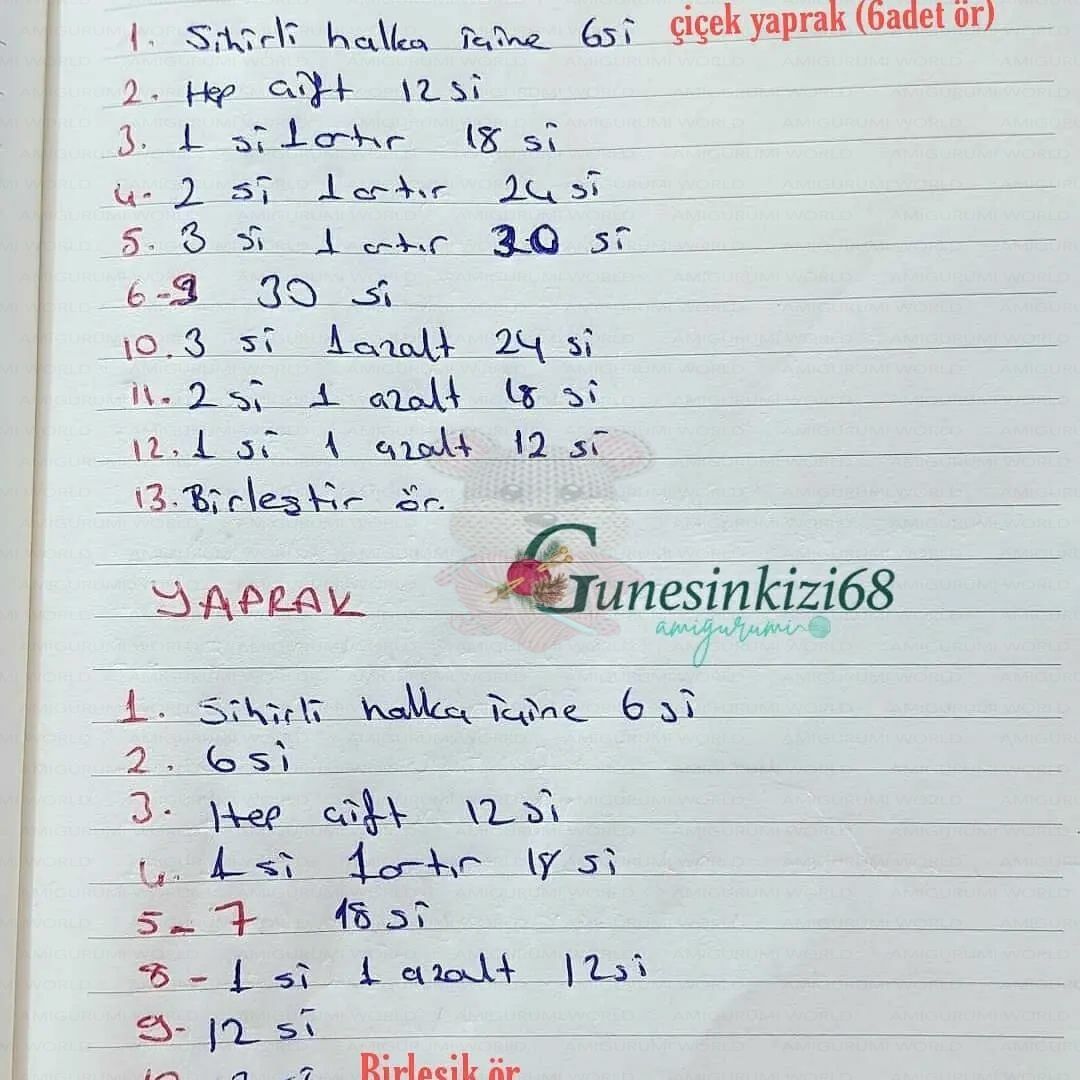 çiçek yaprak (6adet ör)
1. Sihirli halka içine 6si
2. Hep çift 12 si
3. 1 si 1 artır 18 si
4- 2 si 1 artır 24 si
5. 3 si 1 artır 30 si
6-9 30 si
10. 3 si 1 azalt 24 si
11. 2 si 1 azalt 18 si
12. 1 si 1 azalt 12 si
13. Birleştir ör.
Gunesinkizi68
amigurumi
YAPRAK
1. Sihirli halka içine 6 si
2. 6 si
3. Hep çift 12 si
4. 1 si 1 artır 18 si
5-7 18 si
8- 1 si 1 azalt 12 si
9- 12 si
Birleşik ör
AMIGURUMI WORLD